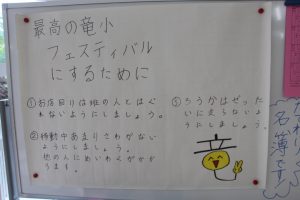 最高の竜小
フェスティバル
にするために
①お店回りは班の人とはぐ
れないようにしましょう。
②移動中あまりさわがない
ようにしましょう。
他の人にめいわくがかか
ります。
③ろうかはぜった
いに走らないよ
うにしましょう。
名簿です